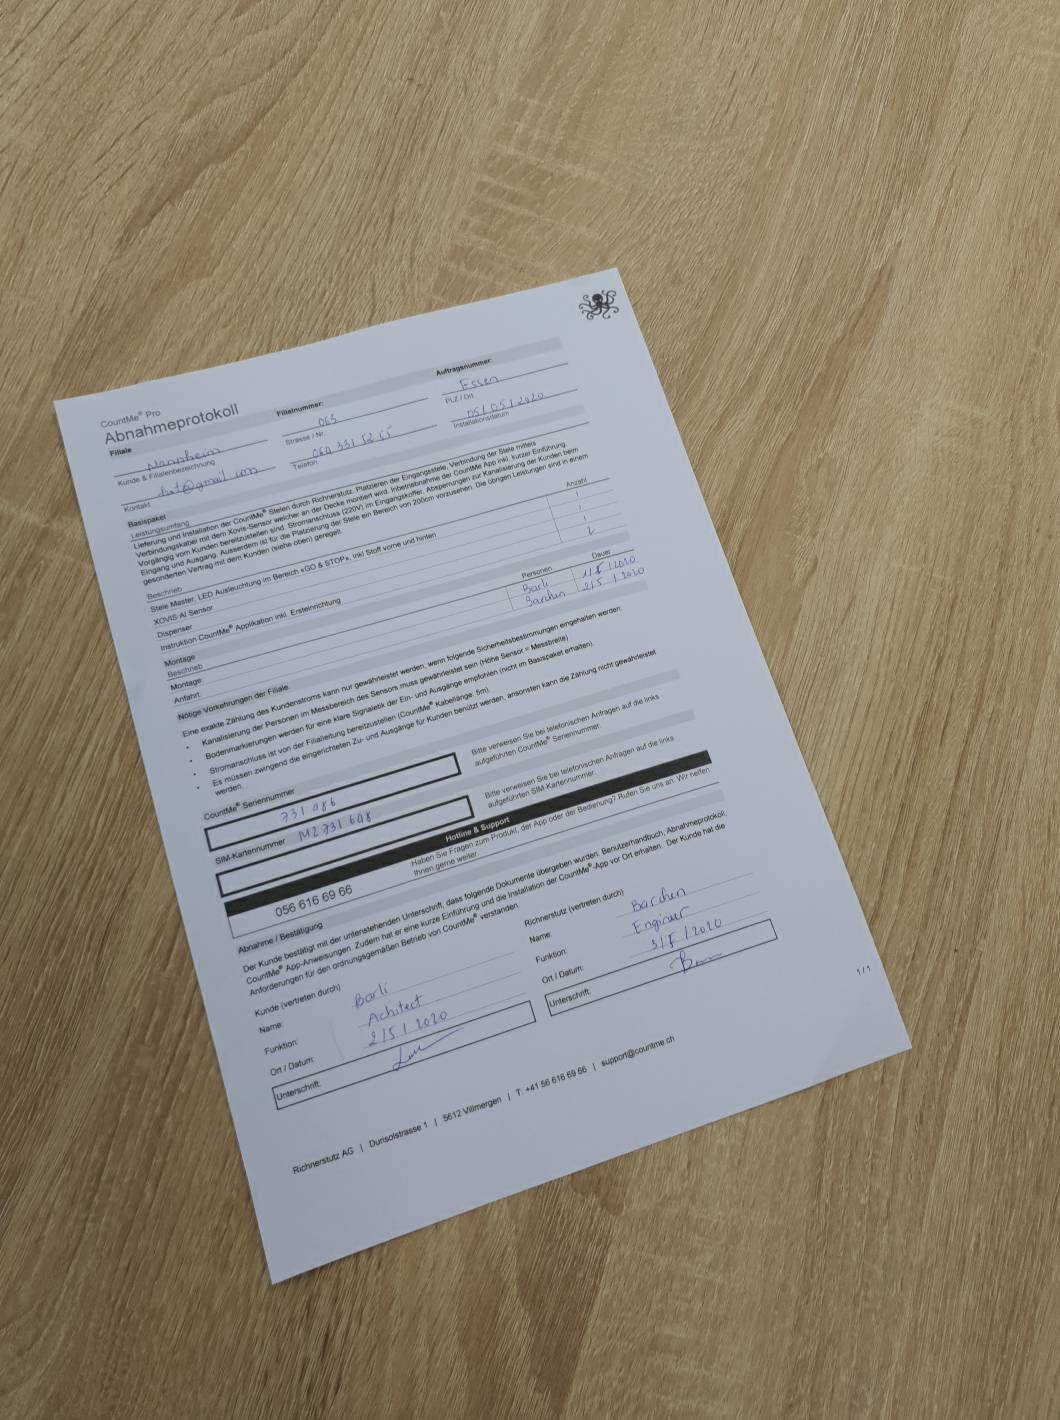 CountMe® Pro
Abnahmeprotokoll
Filiale
Filialnummer:
Auftragsnummer:
Mannheim
063
Essen
Kunde & Filialenbezeichnung
Strasse / Nr.
PLZ / Ort
@gmail.com
05/05/2020
Kontakt
Telefon
Installationsdatum
Basispaket
Leistungsumfang
Lieferung und Installation der CountMe® Stelen durch Richnerstutz. Platzieren der Eingangsstele, Verbindung der Stele mittels
Verbindungskabel mit dem Xovis-Sensor welcher an der Decke montiert wird. Inbetriebnahme der CountMe App inkl. kurzer Einführung.
Vorgängig vom Kunden bereitzustellen sind: Stromanschluss (220V) im Eingangskoffer, Absperrungen zur Kanalisierung der Kunden beim
Eingang und Ausgang. Ausserdem ist für die Platzierung der Stele ein Bereich von 200cm vorzusehen. Die übrigen Leistungen sind in einem
gesonderten Vertrag mit dem Kunden (siehe oben) geregelt.
Beschrieb
Anzahl
Stele Master, LED Ausleuchtung im Bereich «GO & STOP», inkl Stoff vorne und hinten
1
XOVIS AI Sensor
1
Dispenser
1
Instruktion CountMe® Applikation inkl. Ersteinrichtung
2
Montage
Beschrieb
Personen
Dauer
Montage
Barli
1/5/2020
Anfahrt
Barchen
2/5/2020
Nötige Vorkehrungen der Filiale
Eine exakte Zählung des Kundenstroms kann nur gewährleistet werden, wenn folgende Sicherheitsbestimmungen eingehalten werden:
• Kanalisierung der Personen im Messbereich des Sensors muss gewährleistet sein (Höhe Sensor = Messbreite)
• Bodenmarkierungen werden für eine klare Signaletik der Ein- und Ausgänge empfohlen (nicht im Basispaket erhalten).
• Stromanschluss ist von der Filialleitung bereitzustellen (CountMe® Kabellänge: 5m).
• Es müssen zwingend die eingerichteten Zu- und Ausgänge für Kunden benutzt werden, ansonsten kann die Zählung nicht gewährleistet
werden.
CountMe® Seriennummer
Bitte verweisen Sie bei telefonischen Anfragen auf die links
aufgeführten CountMe® Seriennummer.
SIM-Kartennummer
Bitte verweisen Sie bei telefonischen Anfragen auf die links
aufgeführten SIM-Kartennummer.
Hotline & Support
056 616 69 66
Haben Sie Fragen zum Produkt, der App oder der Bedienung? Rufen Sie uns an. Wir helfen
Ihnen gerne weiter.
Abnahme / Bestätigung
Der Kunde bestätigt mit der untenstehenden Unterschrift, dass folgende Dokumente übergeben wurden: Benutzerhandbuch, Abnahmeprotokoll,
CountMe® App-Anweisungen. Zudem hat er eine kurze Einführung und die Installation der CountMe®-App vor Ort erhalten. Der Kunde hat die
Anforderungen für den ordnungsgemäßen Betrieb von CountMe® verstanden.
Kunde (vertreten durch)
Richnerstutz (vertreten durch)
Name:
Barli
Name:
Barchen
Funktion:
Achitect
Funktion:
Engineur
Ort / Datum:
2/5/2020
Ort / Datum:
3/5/2020
Unterschrift:
Unterschrift:
1 / 1
Richnerstutz AG | Durisolstrasse 1 | 5612 Villmergen | T: +41 56 616 69 66 | support@countme.ch